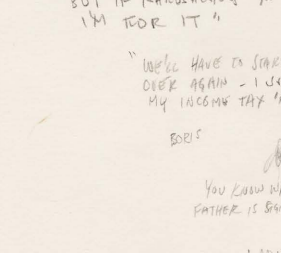 BUT IF
I'M FOR IT"
"WE'LL HAVE TO STAR
OVER AGAIN - I S
MY INCOME TAX
BORIS
YOU KNOW W
FATHER IS SIG